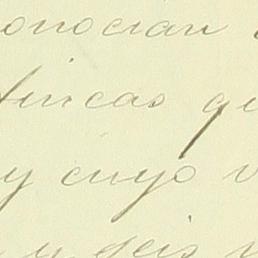 onocian
fincas qu
y cuyo v
y seis